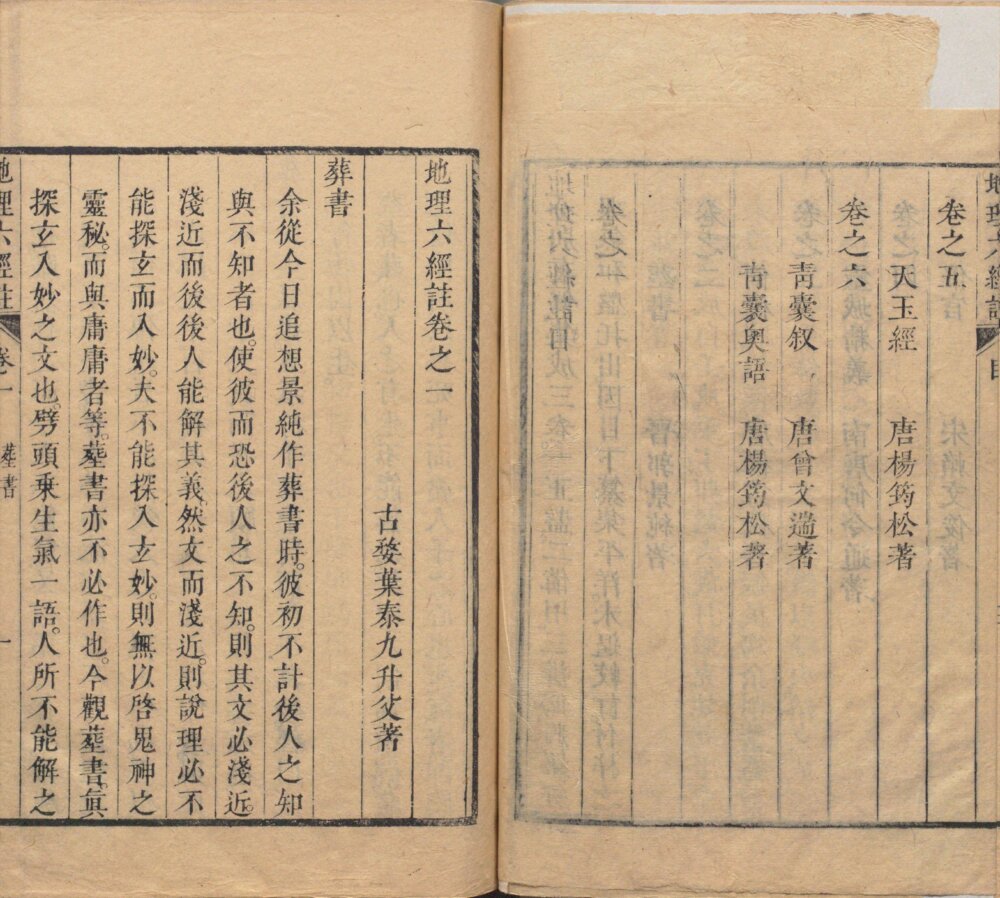 地理六經註 目
卷之五
天玉經 唐楊筠松著
卷之六
靑囊叙 唐曾文遄著
靑囊奥語 唐楊筠松著
地理六經註卷之一
古婺葉泰九升父著
葬書
余從今日追想景純作葬書時。彼初不計後人之知
與不知者也。使彼而恐後人之不知。則其文必淺近。
淺近而後後人能解其義。然文而淺近。則說理必不
能探玄而入妙。夫不能探入玄妙。則無以啓鬼神之
靈秘。而與庸庸者等。塟書亦不必作也。今觀塟書。眞
探玄入妙之文也。劈頭乗生氣一語。人所不能解之
地理六經註 卷一 塟書 一